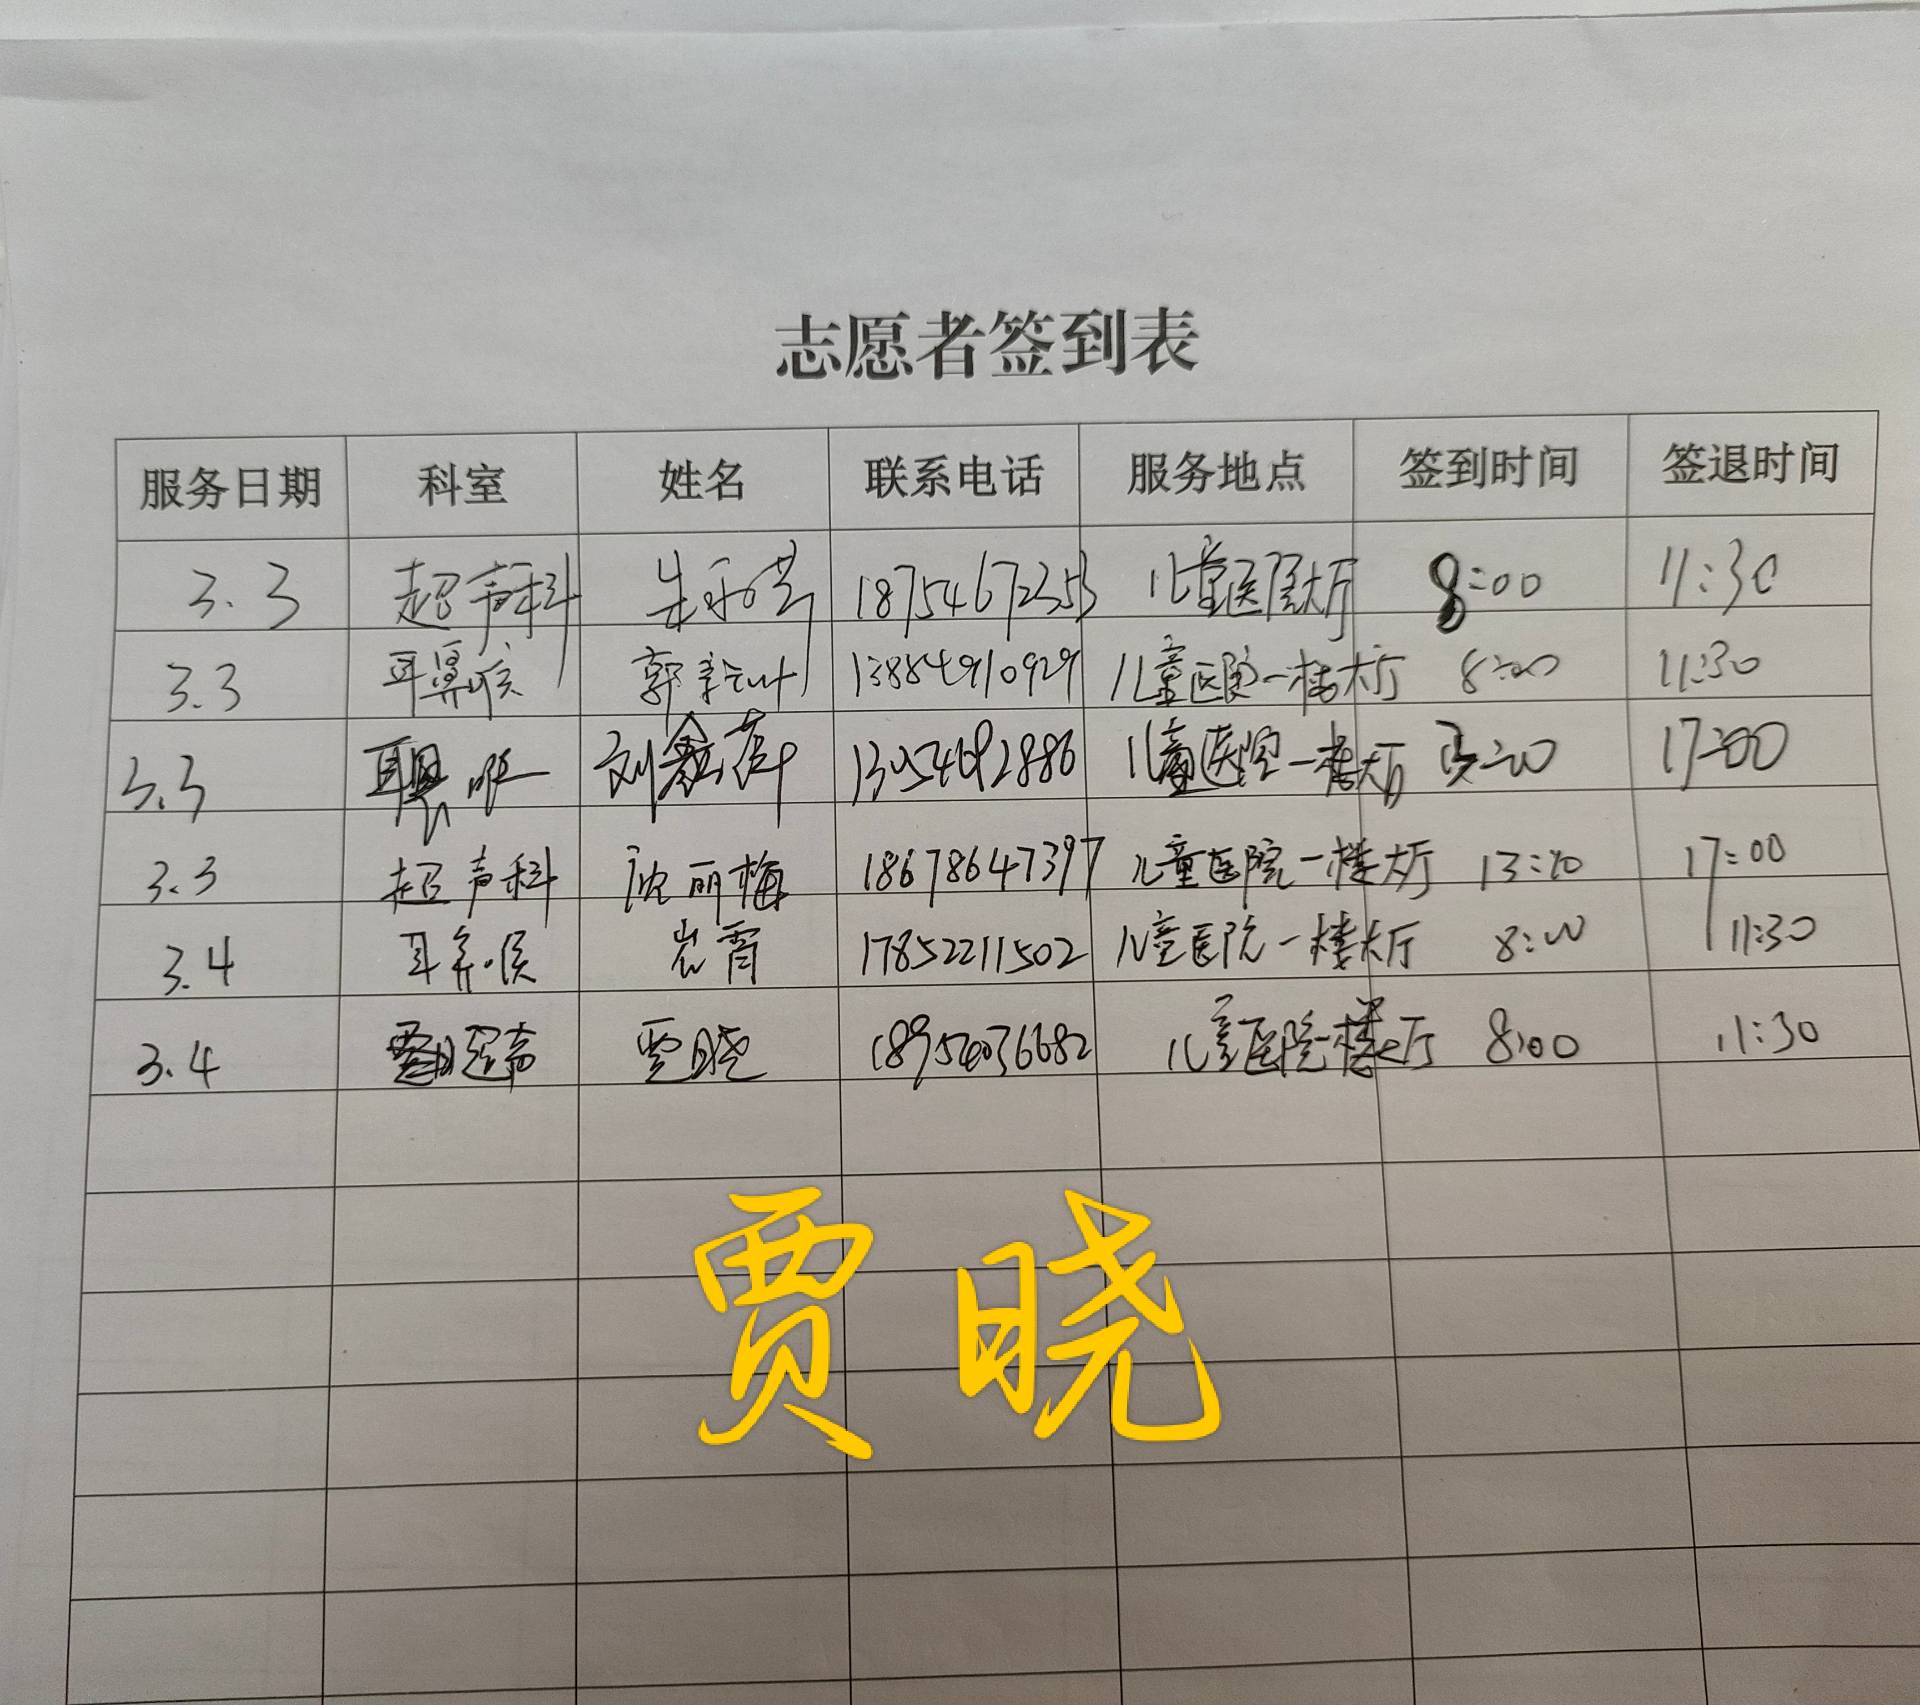 志愿者签到表
服务日期 科室 姓名 联系电话 服务地点 签到时间 签退时间
3.3 超声科 18754672353 儿童医院大厅 8:00 11:30
3.3 耳鼻喉 郭 13884910929 儿童医院一楼大厅 8:00 11:30
3.3 刘鑫 儿童医院一楼大厅 17:00
3.3 超声科 沈丽梅 18678647397 儿童医院一楼大厅 17:00
3.4 耳鼻喉 岩霄 17852211502 儿童医院一楼大厅 8:00 11:30
3.4 超声 贾晓 18954036682 儿童医院一楼大厅 8:00 11:30
贾晓